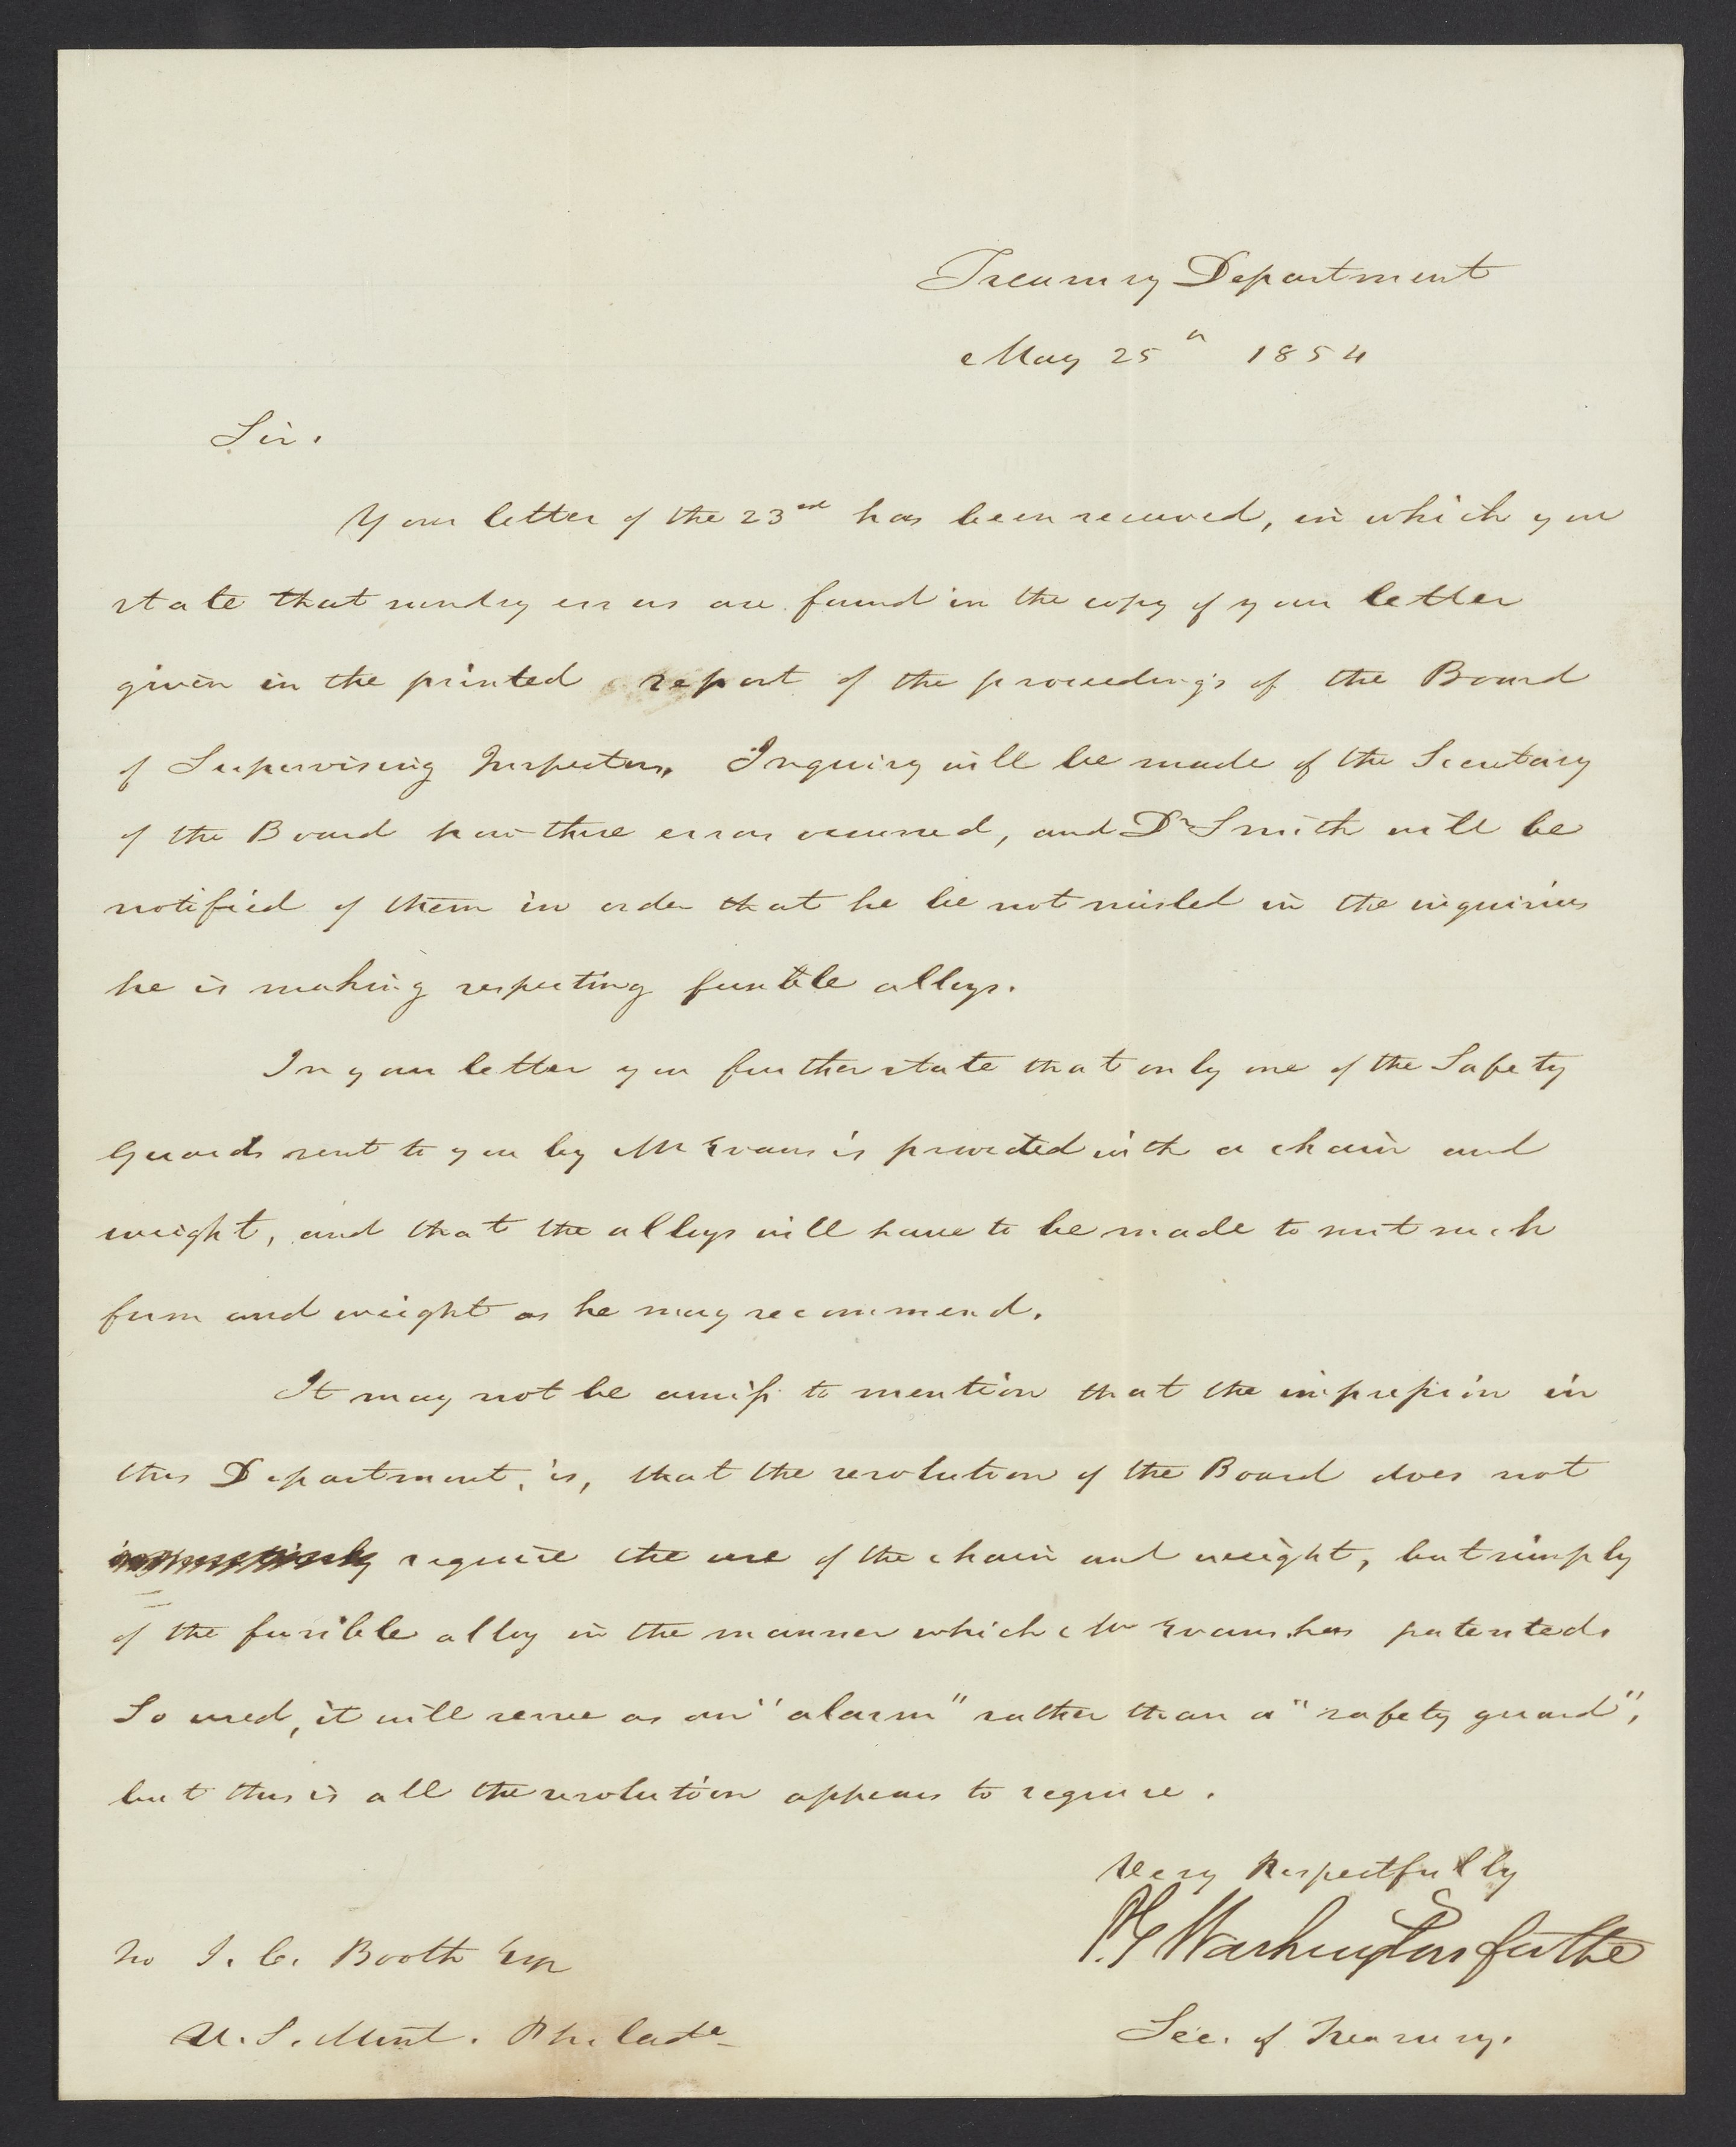 Treasury Department
May 25th 1854
Sir.
Your letter of the 23rd has been received, in which you
state that sundry errors are found in the copy of your letter
given in the printed report of the proceedings of the Board
of Supervising Inspectors. Inquiry will be made of the Secretary
of the Board how these errors occurred, and Dr Smith will be
notified of them in order that he be not misled in the inquiries
he is making respecting fusible alloys.
In your letter you further state that only one of the Safety
Guards sent to you by Mr Evans is provided with a chain and
weight, and that the alloys will have to be made to suit such
form and weight as he may recommend.
It may not be amiss to mention that the impression in
this Department, is, that the resolution of the Board does not
require the use of the chain and weight, but simply
of the fusible alloy in the manner which Mr Evans has patented.
So used, it will serve as an "alarm" rather than a "safety guard",
but this is all the resolution appears to require.
Very Respectfully
P. G Washington for the
Sec. of Treasury.
To J. C. Booth Esq
U. S. Mint. Philada